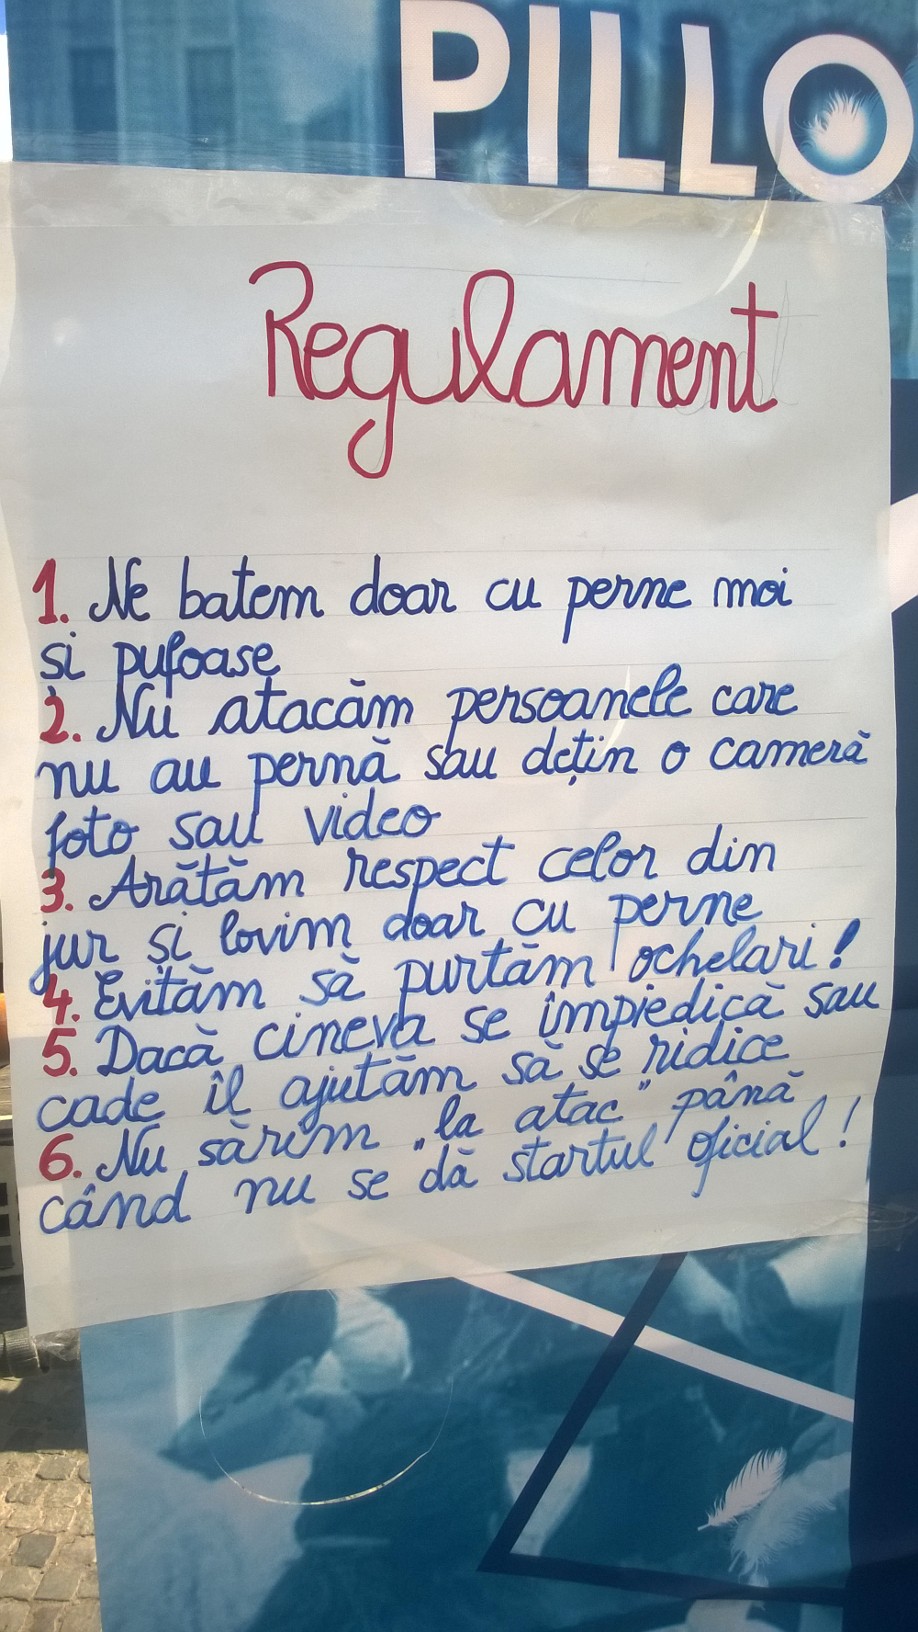 PILLO
Regulament
1. Ne batem doar cu perne moi
și pufoase
2. Nu atacăm persoanele care
nu au pernă sau dețin o cameră
foto sau video
3. Arătăm respect celor din
jur și lovim doar cu perne
4. Evităm să purtăm ochelari!
5. Dacă cineva se împiedică sau
cade îl ajutăm să se ridice
6. Nu sărim „la atac” până
când nu se dă startul oficial!